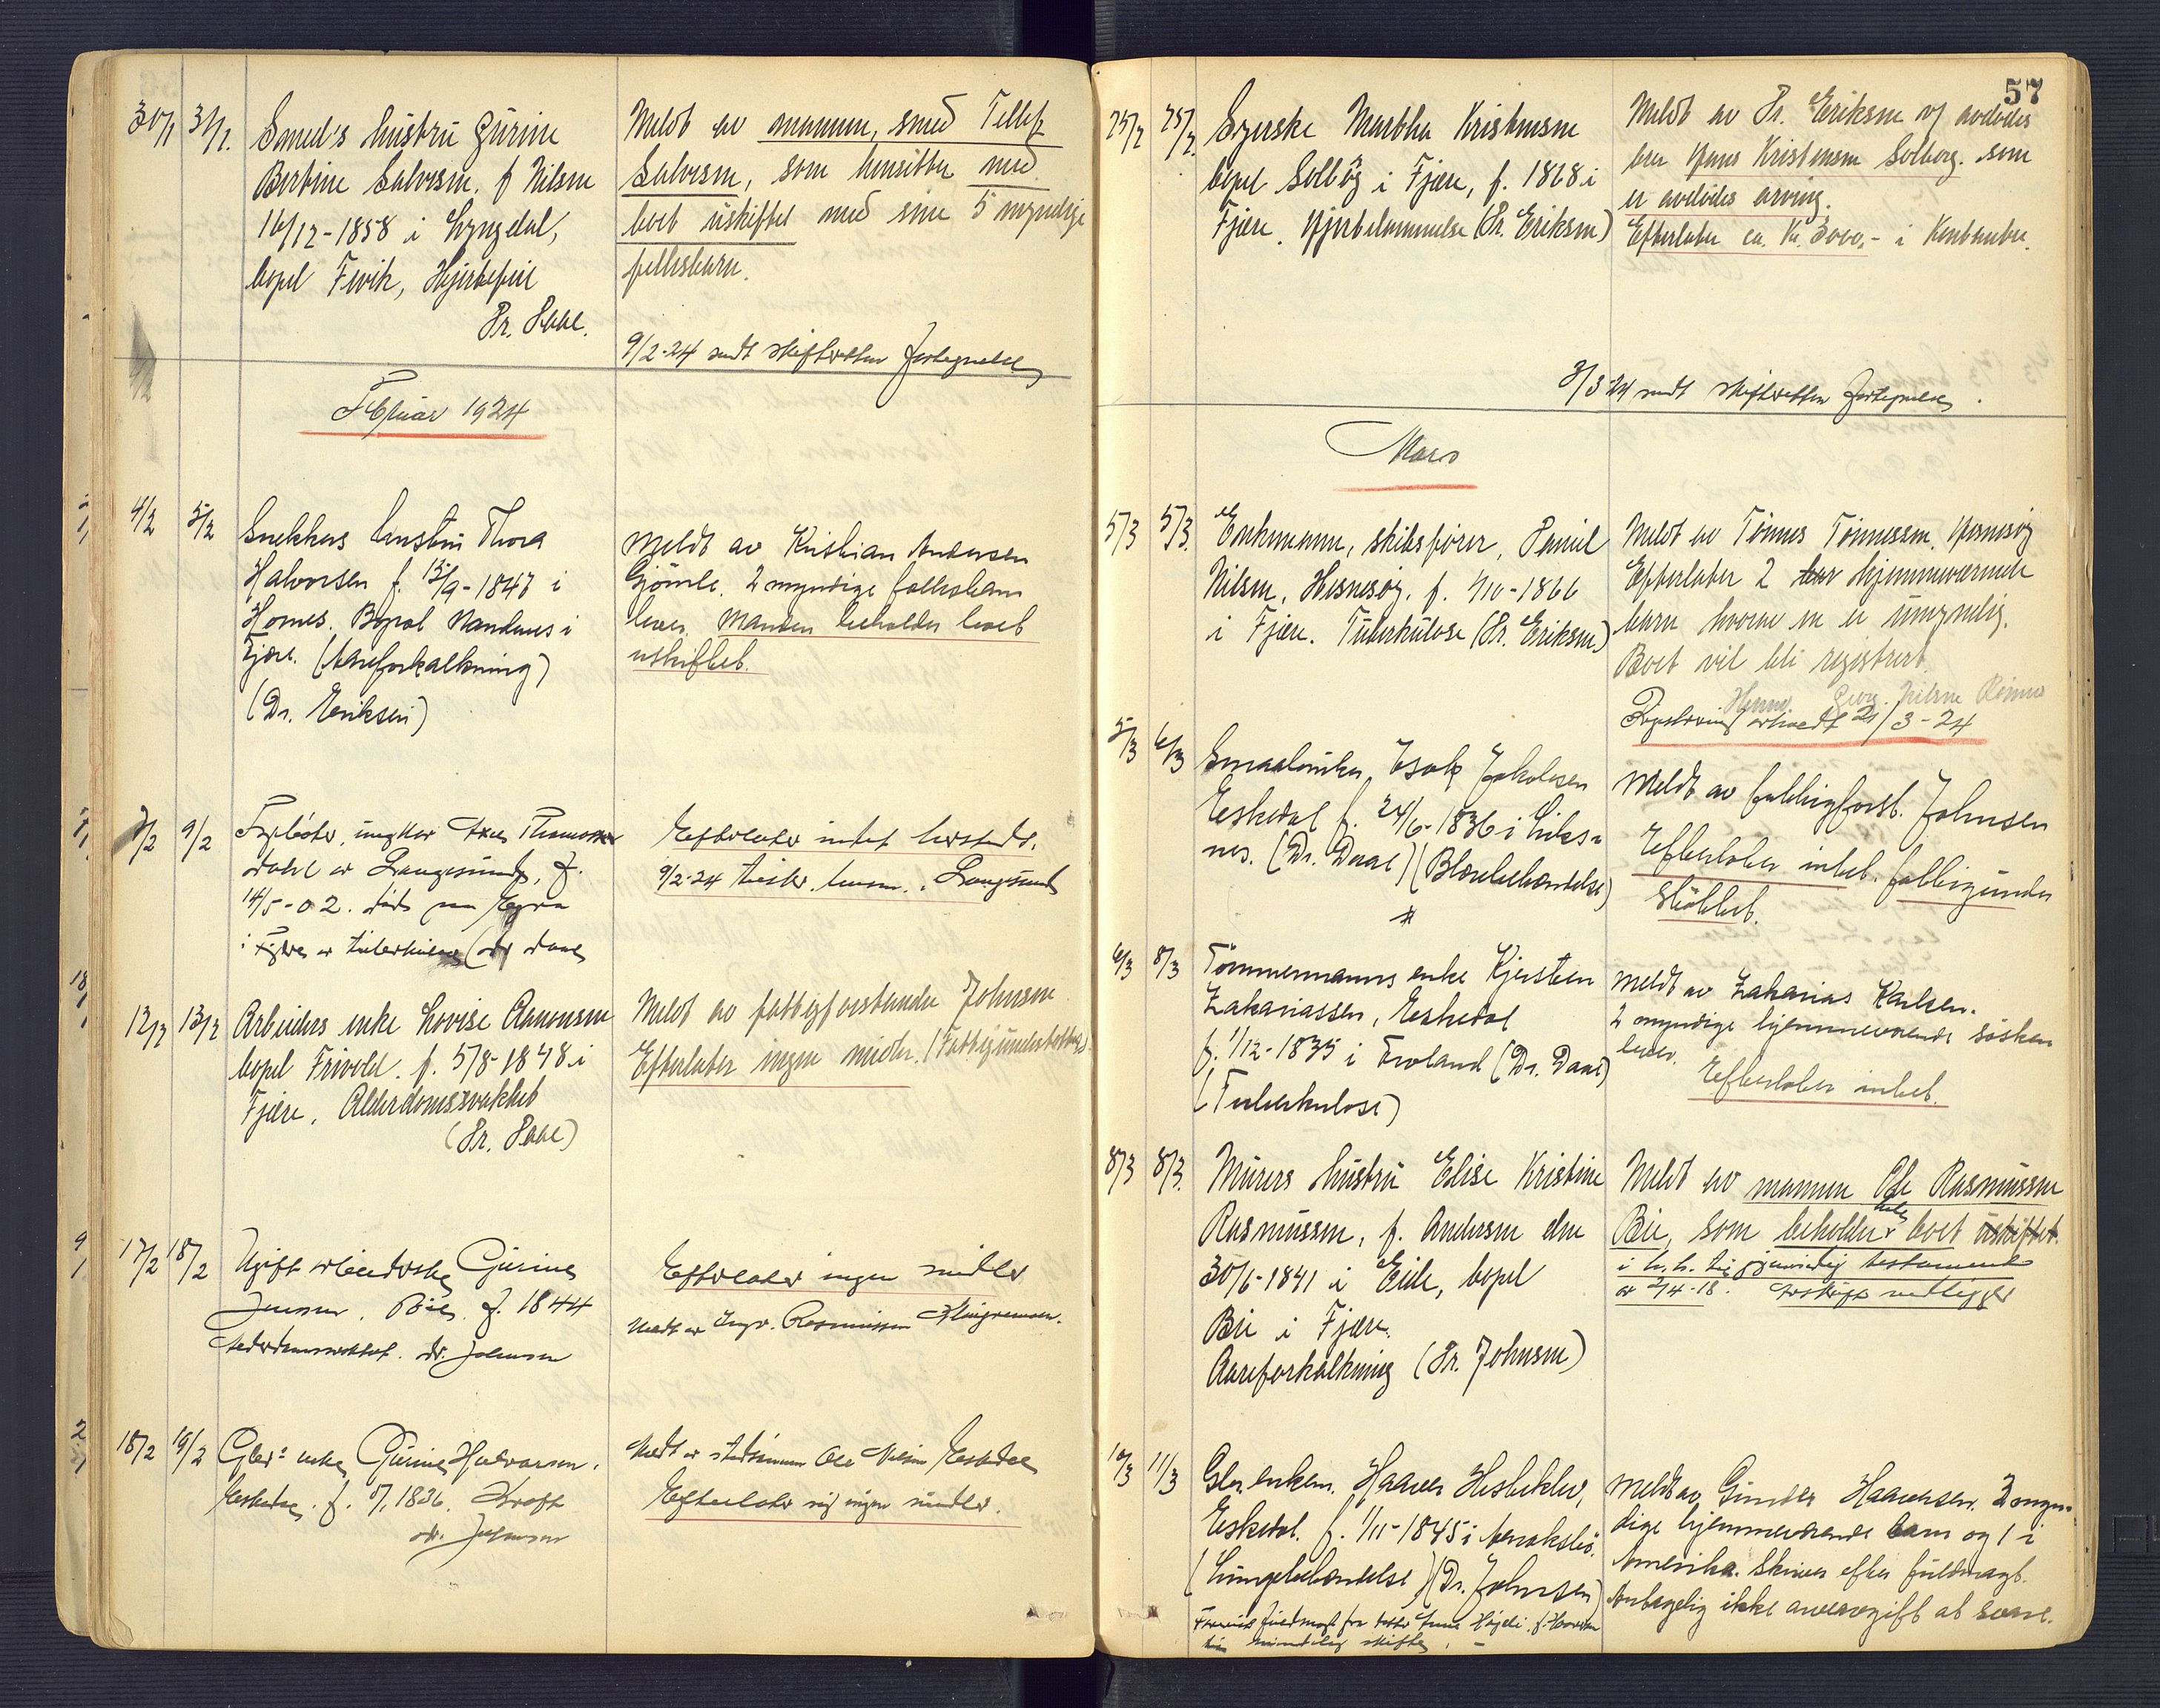 30/1 31/1. Smed's hustru Gurine
Bertine Salvesen. f Nilsen
16/12-1858 i Lyngdal,
bopel Fevik, Hjertefeil
Dr. Daae.
Meldt av mannen, smed Tellef
Salvesen, som hensitter med
boet uskiftet med sine 5 myndige
fellesbarn.
9/2-24 sendt skifteretten fortegnelse
Februar 1924
4/2 5/2 Snekkers hustru Thora
Halvorsen f. 15/9-1847 i
Homes. Bopæl Vandnes i
Fjære. (Aareforkalkning)
(Dr. Eriksen)
Meldt av Kristian Andersen
Gjömle. 2 myndige fellesbarn
lever. Manden beholder boet
uskiftet.
9/2 ungkar Thomassen
Dahl av Langesund, f.
14/5-02. död paa
i Fjære av tuberkulose (dr Daae
Efterlater intet herstedt.
9/2-24 Langesund
12/2 13/2 Arbeiders enke Lovise Aanonsen
bopel Frivold. f. 5/8-1848 i
Fjære. Alderdomssvakhet
(Dr. Daae)
Meldt av fattigforstander Johnsen
Efterlater ingen midler. (Fattigunderstöttet)
17/2 18/2 Ugift arbeiderske Gurine
Jensen. Bie f. 1844
Alderdomssvakhet. dr. Johnsen
Efterlater ingen midler
Meldt av Ingv. Rasmussen
18/2 19/2 enke Gurine Halvorsen.
Eskedal. f. 1836.
dr. Johnsen
Meldt av Ole Nilsen Eskedal
Efterlater sig ingen midler.
57
25/2 25/2. Syerske Martha Kristensen
bopel Solberg i Fjære, f. 1868 i
Fjære. Hjertelammelse (Dr. Eriksen)
Meldt av Dr. Eriksen og avdødes
bror Hans Kristensen Solberg. som
er avdødes arving.
Efterlater ca. Kr. 3000,- i Kontanter.
3/3 24 sendt skifteretten fortegnelse.
Mars
5/3 5/3. Enkemann, skibsfører, Daniel
Nilsen, Hesnesøy. f. 1866
i Fjære. Tuberkulose (Dr. Eriksen)
Meldt av Tønnes Tønnessen, Hesnesøy
Efterlater 2 hjemmeværende
barn hvorav en er umyndig.
Boet vil bli registrert
Registrering avholdt 21/3-24
5/3 6/3 Smaabruker Isak Jakobsen
Eskedal f. 24/6-1836 i
(Dr. Daae)
Meldt av fattigforst. Johnsen
Efterlater intet. fattigunder
stöttet.
6/3 8/3 Tömmermanns enke Kjersten
Zakariassen, Eskedal
f. 1/12-1835 i Froland (Dr. Daae)
(Tuberkulose)
Meldt av Zakarias Karlsen.
2 myndige hjemmeværende söskn
lever.
Efterlater intet.
8/3 8/3. Murers hustru Elise Kristine
Rasmussen, f. Andersen den
30/6-1841 i Eide, bopel
Bie i Fjære.
Aareforkalkning (Dr. Johnsen)
Meldt av mannen Ole Rasmussen
Bie, som beholder hele boet uskiftet.
i h. h. til gjensidig testamente
av 2/4-18. Avskrift vedligger
10/3 11/3 enkem. Haaver
Eskedal. f. 1/11-1845 i
(Lungebetændelse) (Dr. Johnsen)
Meldt av Gunder Haaversen. 2 myn-
dige hjemmeværende barn og 1 i
Amerika. Skriver efter fuldmagt.
Antagelig ikke arveavgift at svare.